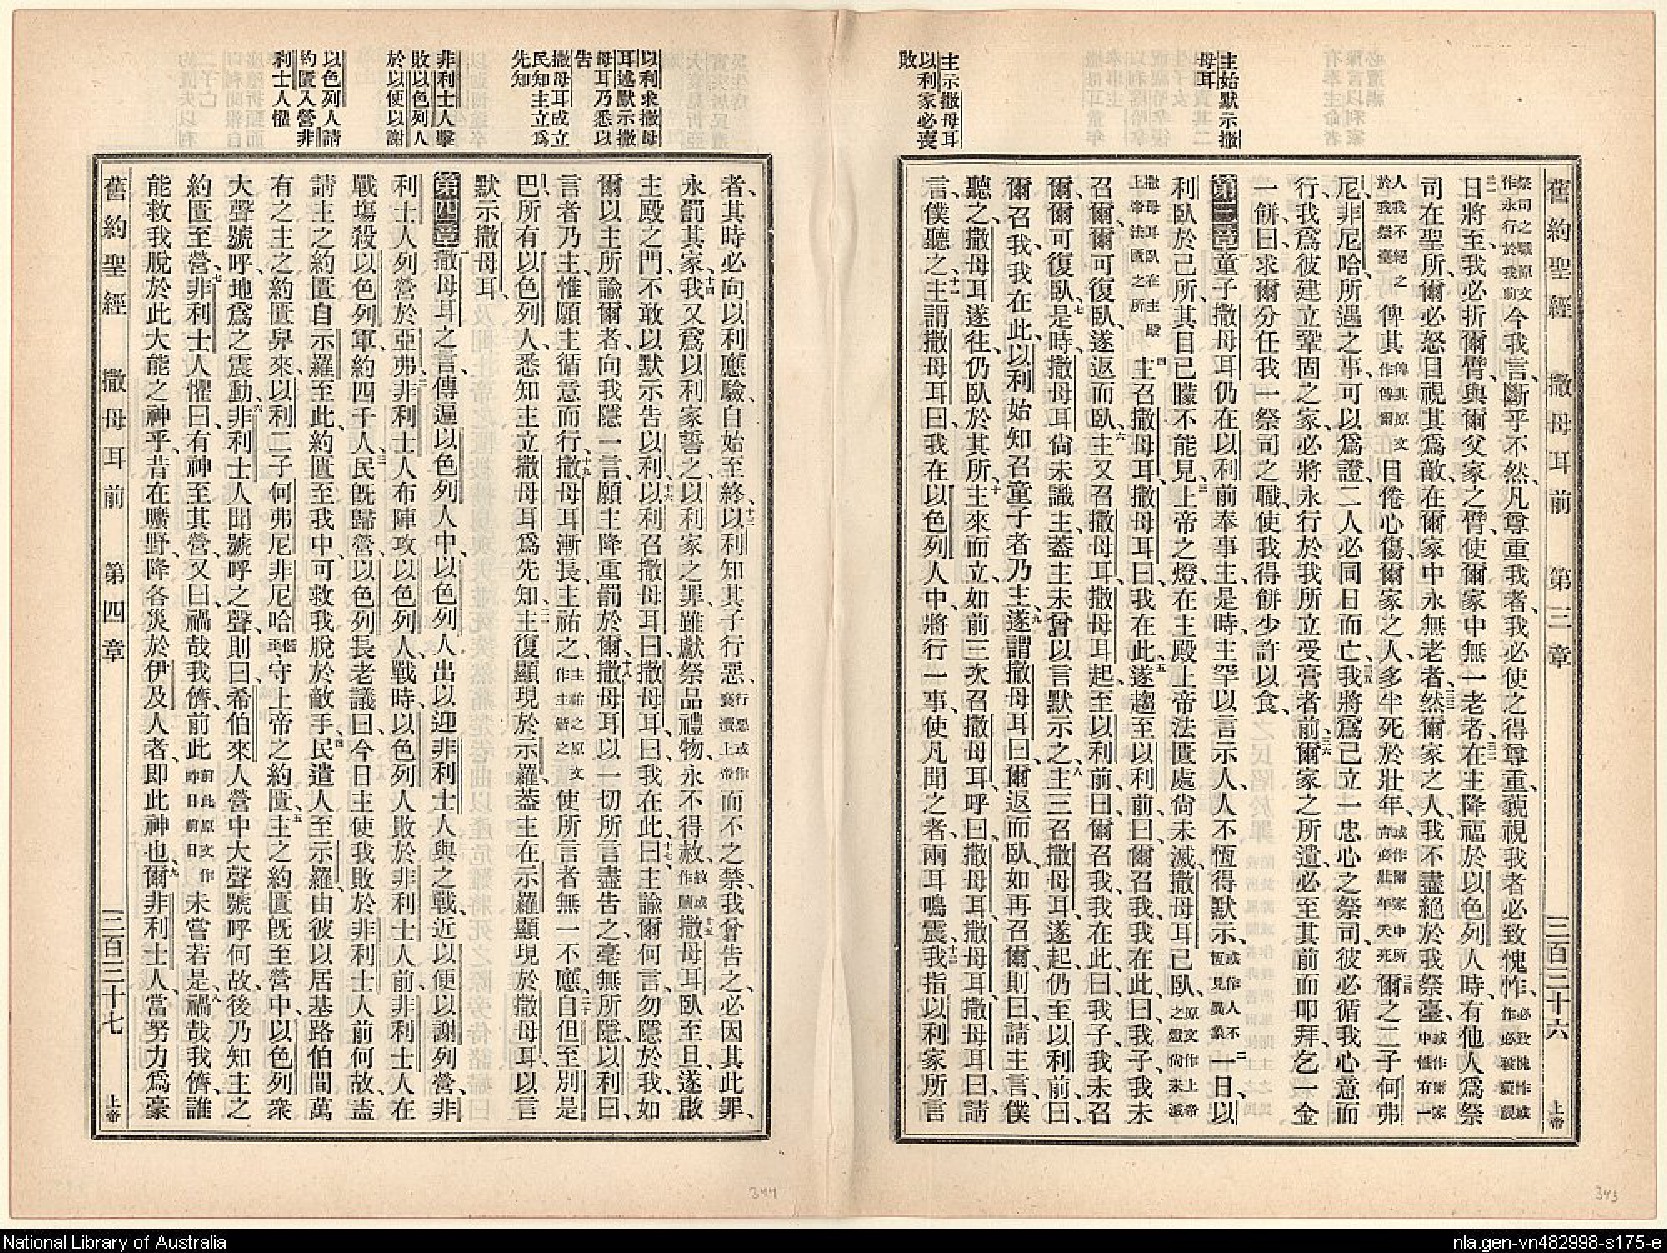 主始默示撒
母耳
主示撒母耳
以利家必喪
敗
舊約聖經 撒母耳前 第三章 三百三十六 上帝
祭司之職原文作永行於我前今我言斷乎不然、凡尊重我者、我必使之得尊重、藐視我者必致愧怍、必致愧怍或作必被藐視
三一日將至、我必折爾臂、與爾父家之臂、使爾家中無一老者、三二在主降福於以色列人時、有他人爲祭
司在聖所、爾必怒目視其爲敵、在爾家中永無老者、三三然爾家之人、我不盡絕於我祭臺、或作爾家中惟有一
人我不絕之於我祭臺俾其俾其原文作俾爾目倦心傷、爾家之人多半死於壯年、或作爾家中所育必壯年夭死三四爾之二子何弗
尼非尼哈所遇之事、可以爲證、二人必同日而亡、三五我將爲己立一忠心之祭司、彼必循我心意而
行、我爲彼建立鞏固之家、必將永行於我所立受膏者前、三六爾家之所遺、必至其前而叩拜、乞一金
一餅、曰、求爾分任我一祭司之職、使我得餅少許以食、
第三章童子撒母耳仍在以利前奉事主、是時、主罕以言示人、人不恆得默示、或作人不恆見異象二一日以
利臥於己所、其目已矇不能見、三上帝之燈在主殿上帝法匱處尚未滅、撒母耳已臥、原文作上帝之燈尚未滅
撒母耳臥在主殿上帝法匱之所四主召撒母耳、撒母耳曰、我在此、五遂趨至以利前、曰、爾召我、我在此、曰、我子、我未
召爾、爾可復臥、遂返而臥、六主又召撒母耳、撒母耳起至以利前、曰、爾召我、我在此、曰、我子、我未召
爾、爾可復臥、七是時、撒母耳尚未識主、蓋主未曾以言默示之、八主三召撒母耳、遂起、仍至以利前、曰、
爾召我、我在此、以利始知召童子者乃主、九遂謂撒母耳曰、爾返而臥、如再召爾、則曰、請主言、僕
聽之、撒母耳遂往、仍臥於其所、十主來而立、如前三次召撒母耳、呼曰、撒母耳、撒母耳、撒母耳曰、請
言、僕聽之、十一主謂撒母耳曰、我在以色列人中將行一事、使凡聞之者、兩耳鳴震、十二我指以利家所言
以利求撒母
耳述默示撒
母耳乃悉以
告
撒母耳成立
民知主立爲
先知
非利士人擊
敗以色列人
於以便以謝
以色列人請
約匱入營非
利士人懼
者、其時必向以利應驗、自始至終、十三以利知其子行惡、行惡或作褻瀆上帝而不之禁、我曾告之、必因其此罪、
永罰其家、十四我又爲以利家誓之、以利家之罪、雖獻祭品禮物、永不得赦、赦或作贖十五撒母耳臥至旦、遂啟
主殿之門、不敢以默示告以利、十六以利召撒母耳曰、撒母耳、曰、我在此、十七曰、主諭爾何言、勿隱於我、如
爾以主所諭爾者、向我隱一言、願主降重罰於爾、十八撒母耳以一切所言盡告之、毫無所隱、以利曰、
言者乃主、惟願主循意而行、十九撒母耳漸長、主祐之、主祐之原文作主偕之使所言者無一不應、二十自但至別是
巴、所有以色列人、悉知主立撒母耳爲先知、二一主復顯現於示羅、蓋主在示羅顯現於撒母耳、以言
默示撒母耳、
第四章撒母耳之言、傳遍以色列人中、以色列人出以迎非利士人、與之戰、近以便以謝列營、非
利士人列營於亞弗、二非利士人布陣攻以色列人、戰時、以色列人敗於非利士人前、非利士人在
戰塲殺以色列軍約四千人、三民既歸營、以色列長老議曰、今日主使我敗於非利士人前何故、盍
請主之約匱自示羅至此、約匱至我中、可救我脫於敵手、四民遣人至示羅、由彼以居基路伯間萬
有之主之約匱舁來、以利二子何弗尼非尼哈偕來守上帝之約匱、五主之約匱既至營中、以色列衆
大聲號呼、地爲之震動、六非利士人聞號呼之聲、則曰、希伯來人營中大聲號呼何故、後乃知主之
約匱至營、七非利士人懼曰、有神至其營、又曰、禍哉我儕、前此前此原文作昨日前日未嘗若是、八禍哉我儕、誰
能救我脫於此大能之神乎、昔在曠野、降各災於伊及人者、即此神也、九爾非利士人、當努力爲豪
舊約聖經 撒母耳前 第四章 三百三十七 上帝
344
343
National Library of Australia
nla.gen-vn482998-s175-e